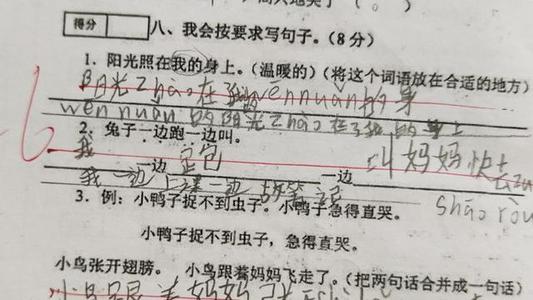 得分
八、我会按要求写句子。(8分)
1. 阳光照在我的身上。(温暖的)(将这个词语放在合适的地方)
阳光zhào在我wēnnuǎn的身
wēn nuǎn 的阳光zhào在我的身上
2. 兔子一边跑一边叫。
我 一边 一边 叫妈妈快去
我一边上课一边
shāo ròu
3. 例：小鸭子捉不到虫子。小鸭子急得直哭。
小鸭子捉不到虫子，急得直哭。
小鸟张开翅膀。 小鸟跟着妈妈飞走了。(把两句话合并成一句话)
小鸟跟着妈妈